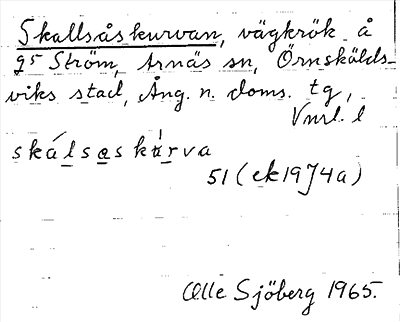 Skallsåskurvan, vägkrök å
gs Ström, Arnäs sn, Örnskölds-
viks stad, Ång. n. doms. tg,
Vnrl. l
skálsaskùrva
51 (ek19J4a)
Olle Sjöberg 1965.